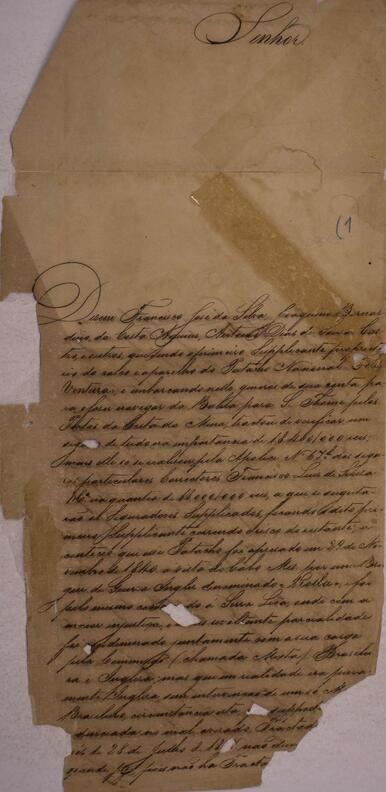 Senhor
(1
Dizem Francisco José da Silva, Joaquim Bernar
dino da Costa Aguiar, Antonio Dias de Souza Cas
tro, e outros, que sendo o primeiro Supplicante proprieta
rio do casco e aparelho do Patacho Nacional Feliz
Ventura, e embarcando nelle generos de sua conta pa
ra o fazer navegar da Bahia para S. Thomé pelos
Portos da Costa da Mina, tratou de verificar um
seguro de tudo na importancia de 18:400$000 reis,
mas elle só se realisou pela Apolice Nº 67 dos segu
ros particulares Corredores Francisco Luis de Souza
na quantia de 14:000$000 reis, a que se sugeita
rão os Seguradores Supplicados, ficando o dito pri
meiro Supplicante correndo o risco do restante; a
conteceo que esse Patacho foi apresado em 29 de No
vembro de 1840 a oito do Cabo Mes, por um Bri
gue de Guerra Inglez denominado
pelo mesmo condusido a Serra Lioa, onde com a
maior injustiça, e escandalosa parcialidade
foi condemnado juntamente com a sua carga
pela Commissão (chamada Mixta) Brasilei
ra e Ingleza, mas que em realidade era pura
mente Ingleza sem intervenção de um só
Brasileiro, circunstancia esta
denunciada no mal errado Tractado
de 28 de Julho de 18 não deu
grande
pois não ha Tractado